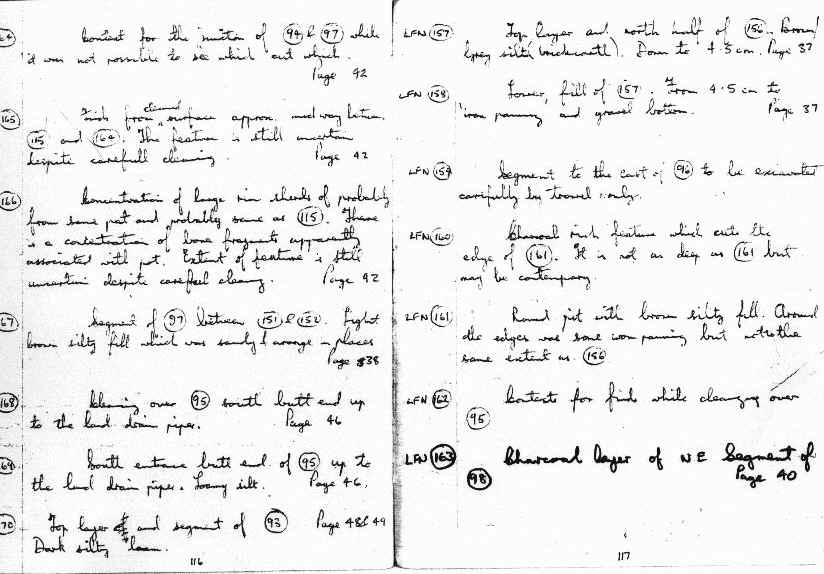 64 Context for the junction of 94 & 97 while
it was not possible to see which cut which.
Page 42
165 Finds from cleaned surface approx. midway between
115 and 164. The feature is still uncertain
despite carefull cleaning. Page 42
166 Concentration of large rim sherds of probably
from same pot and probably same as 115. There
is a concentration of bone fragments apparently
associated with pot. Extent of feature is still
uncertain despite carefull cleaning. Page 42
67 Segment of 97 between 151 & 152. Light
brown silty fill which was sandy & orange in places
Page 38
168 Cleaning over 95 south butt end up
to the land drain pipes. Page 46
69 South entrance butt end of 95 up to
the land drain pipes. Loamy silt. Page 46.
70 Top layer and segment of 93 Page 48 & 49
Dark silty loam.
116
LFN 157 Top layer and north half of 156. Brown/
grey silt (brickearth). Down to 4.5cm. Page 37
LFN 158 Lower, fill of 157. From 4.5 cm to
iron panning and gravel bottom. Page 37
LFN 159 Segment to the east of 96 to be excavated
carefully by trowel only.
LFN 160 Charcoal rich feature which cuts the
edge of 161. It is not as deep as 161 but
may be contempary.
LFN 161 Round pit with brown silty fill. Around
the edges was some iron panning but not to the
same extent as 156
LFN 162 Contexts for finds while cleaning over
95
LFN 163 Charcoal layer of NE Segment of
98 Page 40
117